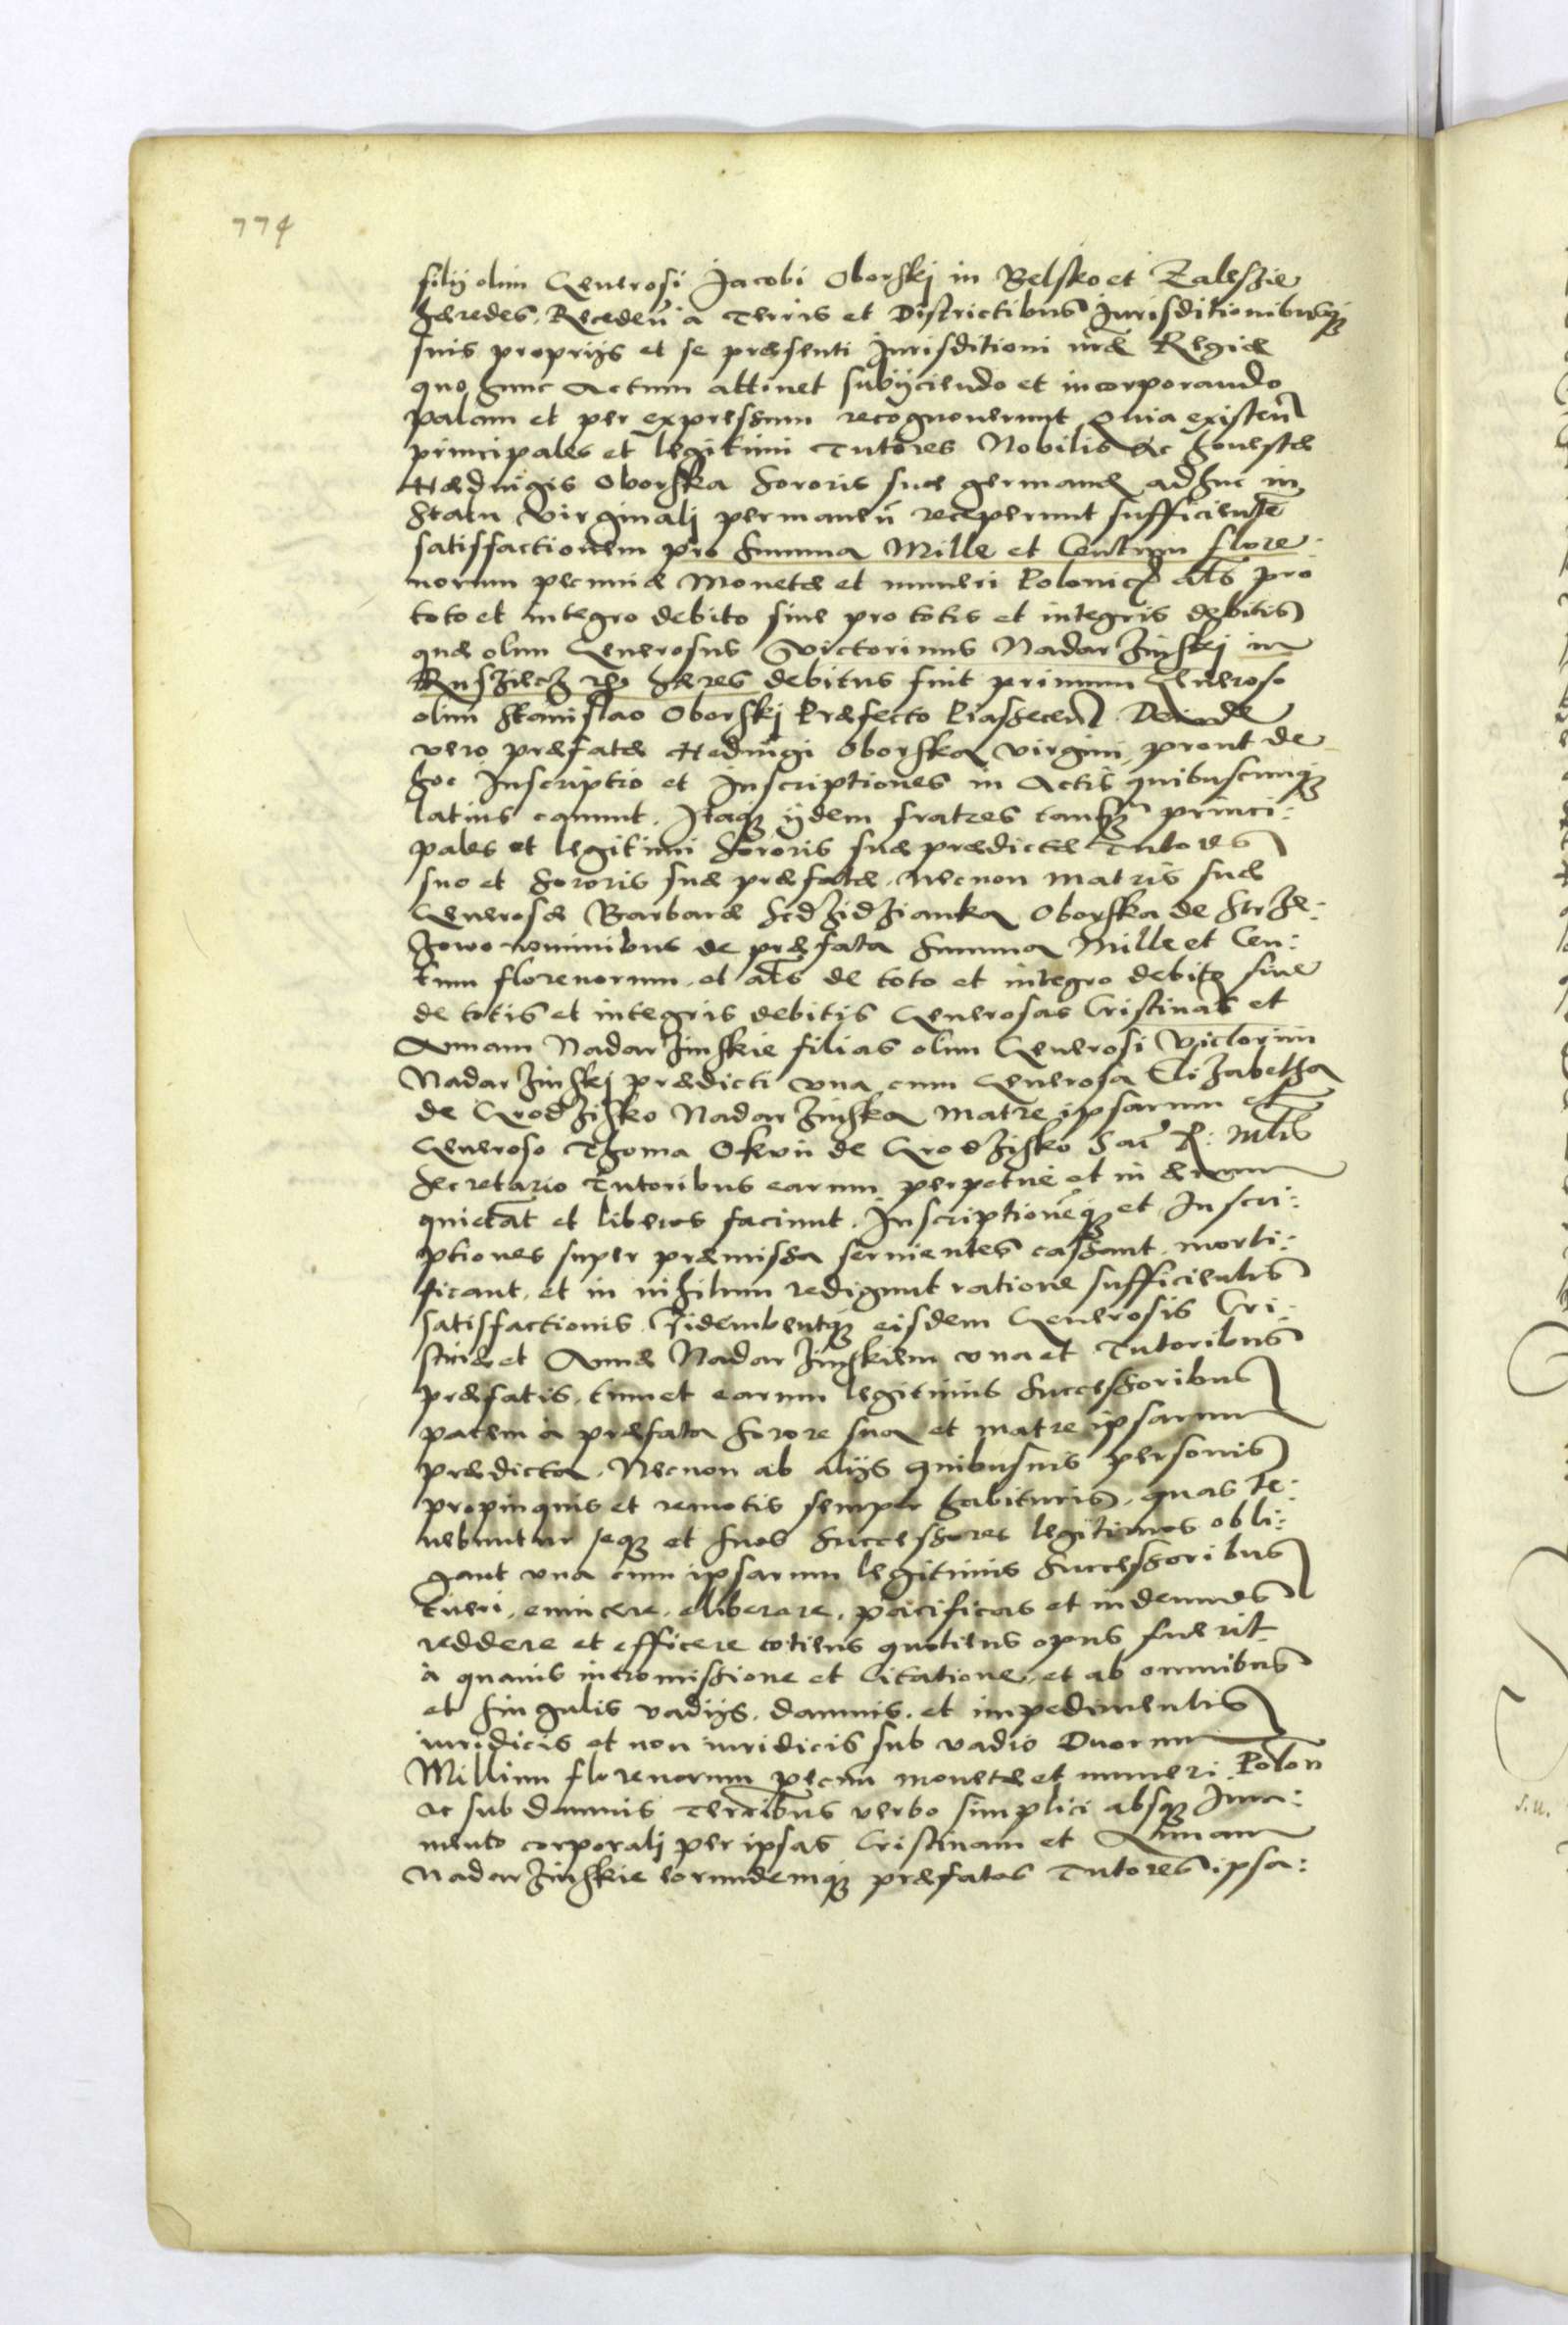 774
filij olim Generosi Jacobi Oborskj in Belsko et Zaleszie
hæredes. Receden̄ a Terris et Districtibus Jurisditionibusq3
suis proprijs et se præsenti Jurisditioni nr̄æ Regiæ
quo hunc Actum attinet subijciendo et incorporando
palam et per expressum recognouerunt Quia existen̄
principales et legitimi Tutores Nobilis Ac honestæ
Hædvigis Oborska Sororis suæ germanæ adhuc in
Statu virginalj permanen̄ receperunt sufficientē
satisfactionem pro Summa Mille et Centum flore:
norum pecuniæ Monetæ et numeri Polonicę als pro
toto et integro debito siue pro totis et integris debitis
quæ olim Generosus Victorinus Nadarzinskj in
hæres debitus fuit primum Generoso
olim Stanislao Oborskj Præfecto Piassecen̄. Deinde
vero præfatæ Hedvigi Oborska virgini, prout de
hoc Inscriptio et Inscriptiones in Actis quibuscunq3
latius canunt. Itaq3 ijdem fratres tanq3 princi:
pales et legitimi Sororis suæ prædictæ Tutores
suo et Sororis suæ præfatæ, necnon matris suæ
Generosæ Barbaræ Oborska de
nominibus de præfata Summa Mille et Cen:
tum florenorum, et als de toto et integro debito siue
de totis et integris debitis Generosas Cristinam et
Annam Nadarzinskie filias olim Generosi Victorini
Nadarzinskj prædicti vna cum Generosa Elizabetha
de Grodzisko Nadarzinska matre ipsarum et
Generoso Thoma Okvn de Grodzisko Sac̄ R: Mtis
Secretario Tutoribus earum perpetue et in ævum
quietat et liberos faciunt. Inscriptionēq3 et Inscri:
ptiones super præmissa seruientes cassant, morti:
ficant, et in nihilum redigunt ratione sufficientis
satisfactionis. eisdem Generosis Cri:
stinæ et Annæ Nadarzinskiem vna et Tutoribus
præfatis, tum et earum legitimis Successoribus
pacem à præfata Sorore sua et matre ipsarum
prædicta. Necnon ab alijs quibusuis personis
propinquis et remotis semper habituris, quas te:
nebuntur seq3 et suos Successores legitimos obli:
gant vna cum ipsarum legitimis Successoribus
tueri, euincere, eliberare, pacificas et indemnes
reddere et efficere totiens quotiens opus fuerit
à quauis intromissione et Citatione, et ab omnibus
et singulis vadijs, damnis, et impedimentis
iuridicis et non iuridicis sub vadio Duorum
Millium florenorum pecun̄ monetæ et numeri Polon̄
Ac sub damnis verbo simplici absq3 Iura:
mento corporalj per ipsas Cristinam et Annam
Nadarzinskie eorumdemq3 præfatos Tutores ipsa: